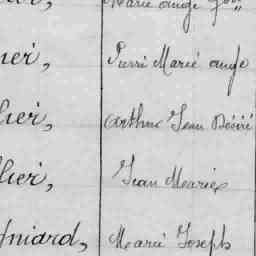 Marie ange
ier, Pierre Marie ange
lier, Arthur Jean Désiré
llier, Jean Marie
gniard, Marie Joseph